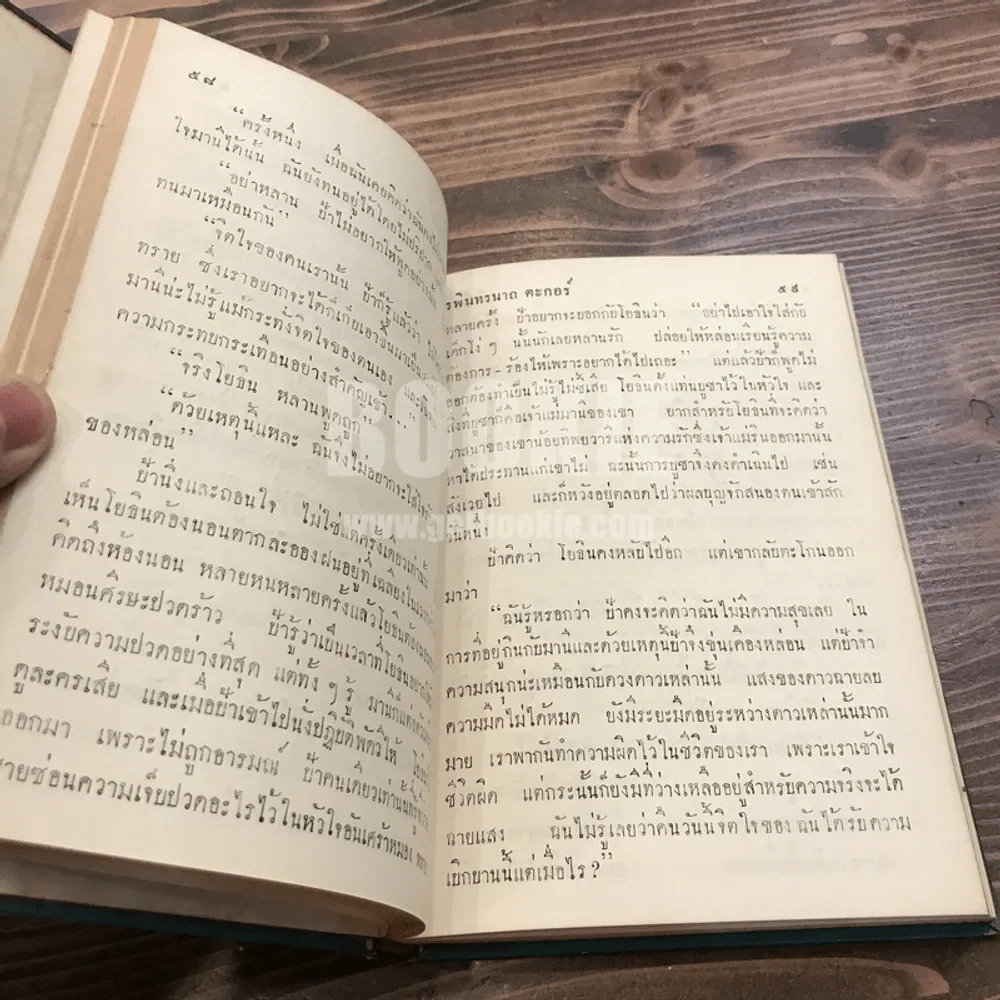 ๕๘
“ครั้งหนึ่ง เมื่อฉันเคยคิดว่าฉันคง
ใจมานีได้นั้น ฉันยังทนอยู่ได้โดยไม่ปริปาก
“อย่าหลาน ป้าไม่อยากให้พูดอย่างนั้น
ทนมาเหมือนกัน”
“จิตใจของคนเรานั้น ป้าก็รู้แล้วว่า
ทราย ซึ่งเราอยากจะได้ก็เก็บเอาขึ้นมาเป็น
มานีน่ะไม่รู้แม้กระทั่งจิตใจของตนเอง และ
ความกระทบกระเทือนอย่างสำคัญเข้า...”
“จริงโยธิน หลานพูดถูก”
“ด้วยเหตุนี้แหละ ฉันจึงไม่อยากจะใส่ใจ
ของหล่อน”
ป้านิ่งและถอนใจ ไม่ใช่แต่ครั้งเดียวเท่านั้น
เห็นโยธินต้องนอนตากละอองฝนอยู่ที่เฉลียงใน
คิดถึงห้องนอน หลายหนหลายครั้งแล้วโยธินต้องนอน
หมอนศีรษะปวดร้าว ป้ารู้ว่าเป็นเวลาที่โยธินอยากให้
ระงับความปวดอย่างที่สุด แต่ทั้ง ๆ รู้ มานีก็แต่งตัว
ดูละครเสีย และเมื่อป้าเข้าไปนั่งปฏิบัติพัดวีให้
ออกมา เพราะไม่ถูกอารมณ์ ป้าคนเดียวเท่านั้นที่รู้
ชายซ่อนความเจ็บปวดอะไรไว้ในหัวใจอันเศร้าหมอง
รพินทรนาถ ตะกอร์ ๕๙
หลายครั้ง ป้าอยากจะบอกกับโยธินว่า “อย่าไปเอาใจใส่กับ
เด็กโง่ ๆ นั้นนักเลยหลานรัก ปล่อยให้หล่อนเรียนรู้ความ
ต้องการ-ร้องไห้เพราะอยากได้ไปเถอะ” แต่แล้วป้าก็พูดไม่
ออกต้องทำเป็นไม่รู้ไม่ชี้เสีย โยธินตั้งแท่นบูชาไว้ในหัวใจ และ
สิ่งที่บูชาก็คือเจ้าแม่มานีของเขา ยากสำหรับโยธินที่จะคิดว่า
วาสนาของเขาน้อยทิพยวารีแห่งความรักซึ่งเจ้าแม่รินออกมานั้น
หาได้ประทานแก่เขาไม่ ฉะนั้นการบูชาจึงคงดำเนินไป เช่น
สังเวยไป และก็หวังอยู่ตลอดไปว่าผลบุญจักสนองตนเข้าสัก
วันหนึ่ง
ป้าคิดว่า โยธินคงหลับไปอีก แต่เขากลับตะโกนออก
มาว่า
“ฉันรู้หรอกว่า ป้าคงจะคิดว่าฉันไม่มีความสุขเลย ใน
การที่อยู่กินกับมานีและด้วยเหตุนี้ป้าจึงขุ่นเคืองหล่อน แต่ป้าจ๋า
ความสนุกน่ะเหมือนกับดวงดาวเหล่านั้น แสงของดาวฉายลบ
ความมืดไม่ได้หมด ยังมีระยะมืดอยู่ระหว่างดาวเหล่านั้นมาก
มาย เราพากันทำความผิดไว้ในชีวิตของเรา เพราะเราเข้าใจ
ชีวิตผิด แต่กระนั้นก็ยังมีที่ว่างเหลืออยู่สำหรับความจริงจะได้
ฉายแสง ฉันไม่รู้เลยว่าคืนวันนี้จิตใจของฉันได้รับความ
เบิกบานนี้แต่เมื่อไร?”
www.getbookie.com